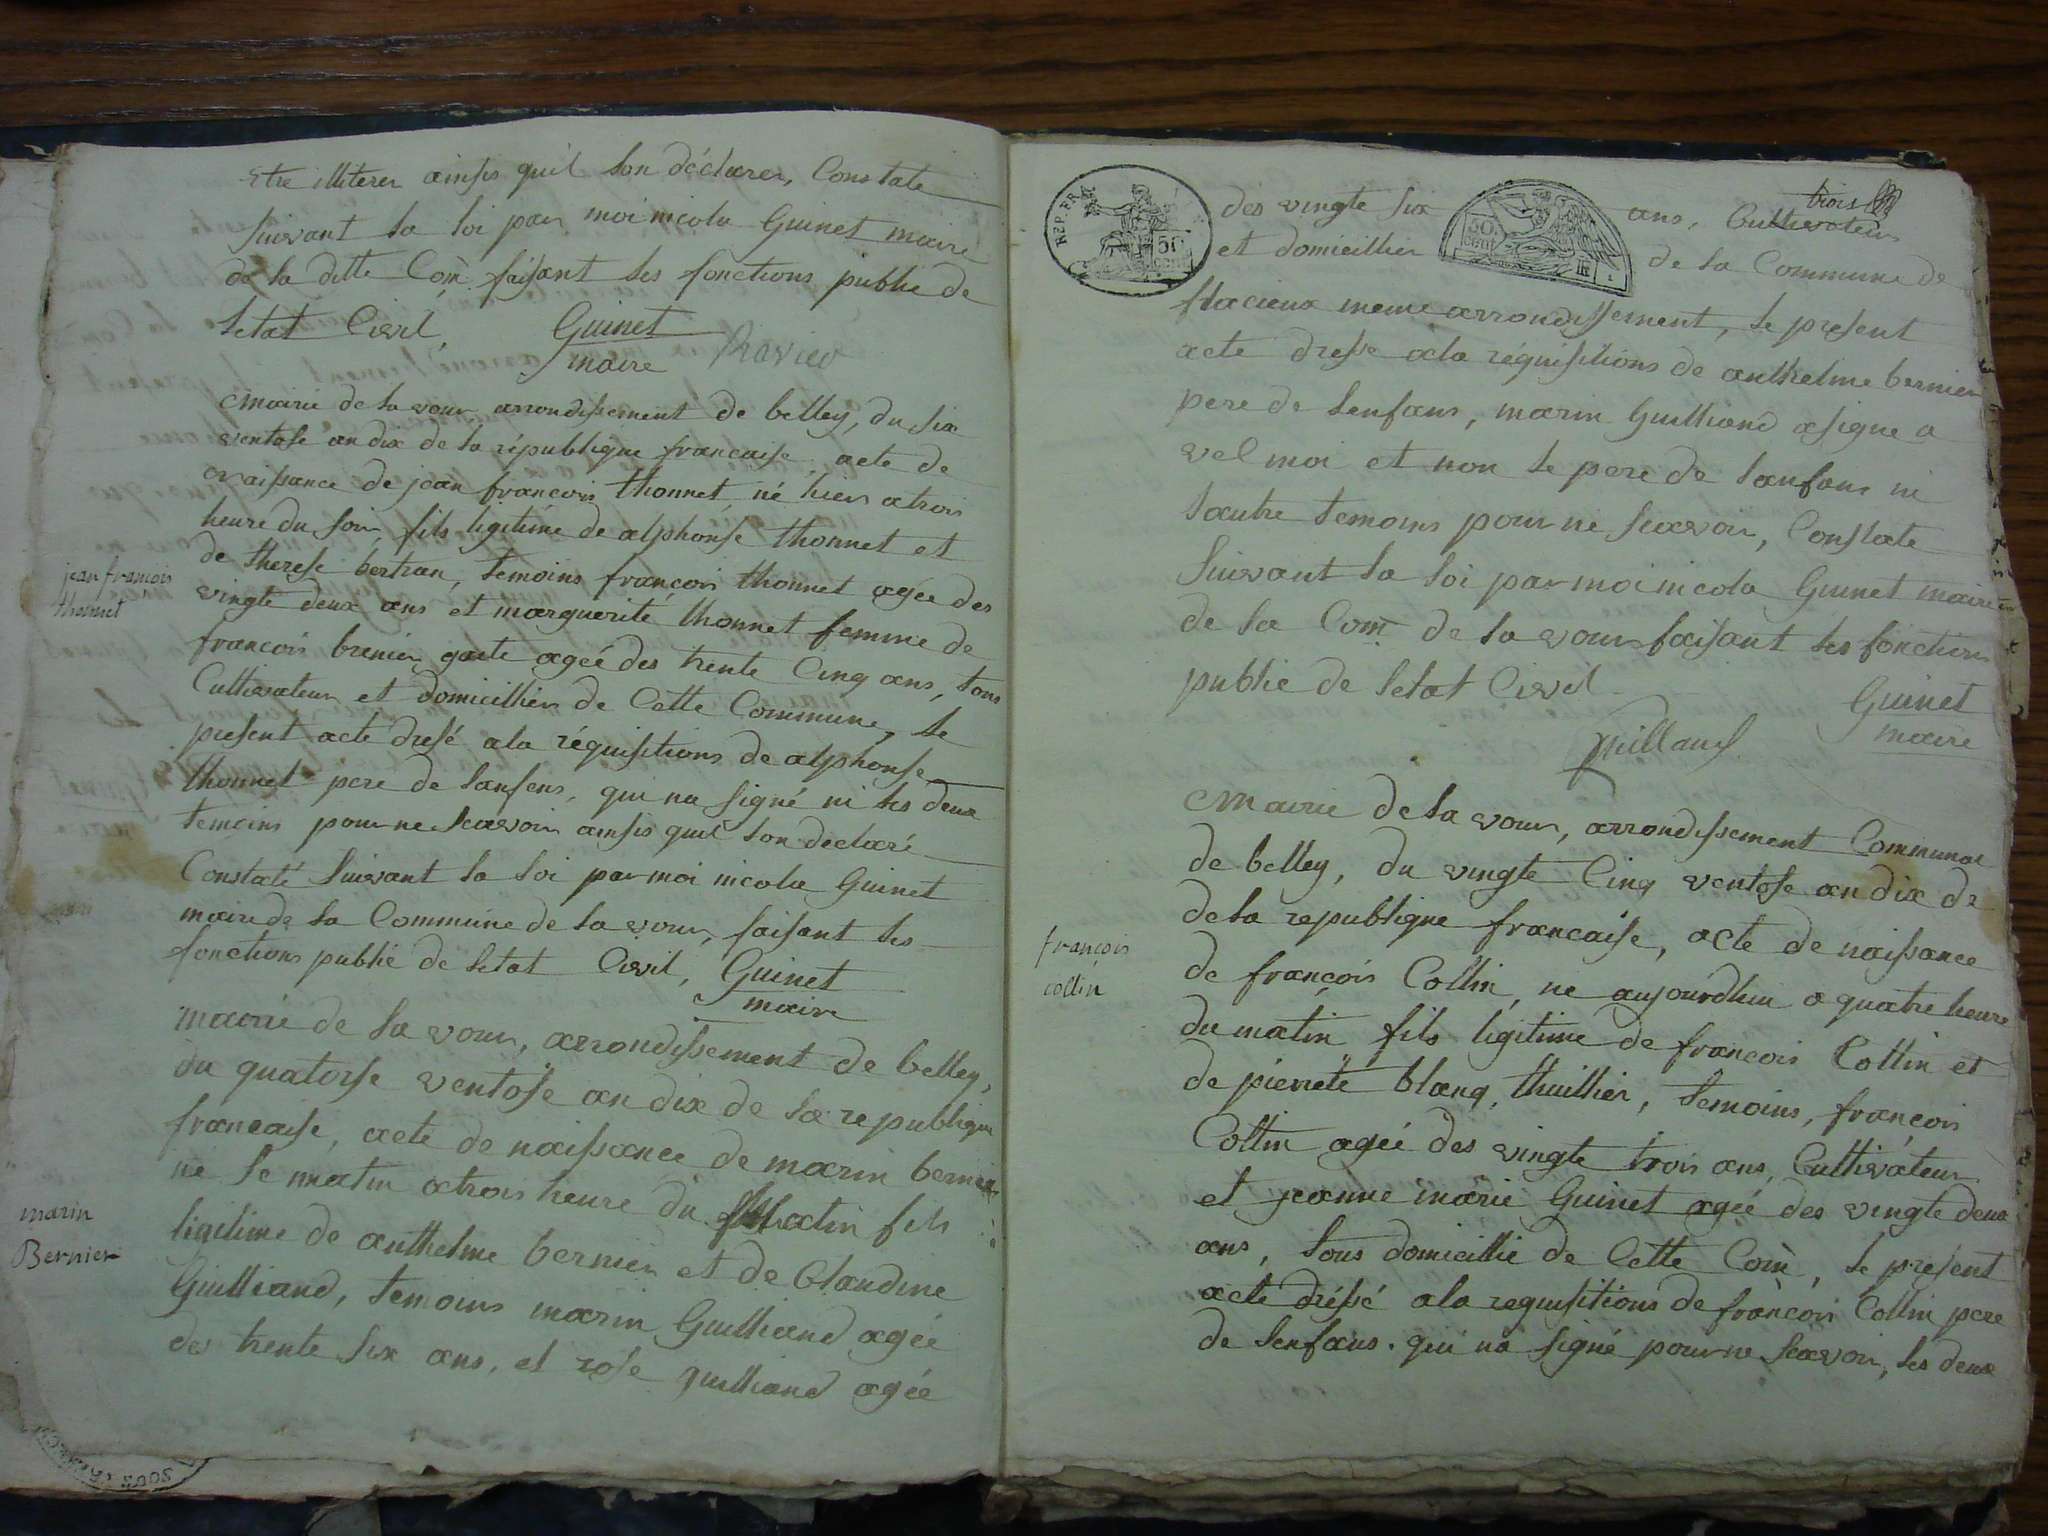 Etre illiterer ainsis quil lon déclarer, Constate
suivant la loi par moi nicola Guinet maire
de la ditte Com faisant les fonctions publié de
letat Civil, Guinet
maire Ravier
Mairie de la vour arrondissement de belley, du six
ventose an dix de la république francaise, acte de
naissance de jean françois thonnet, né hier a trois
heure du soir, fils ligitime de alphonse thonnet et
de therese bertran, temoins françois thonnet agée des
jean françois
thonnet
vingte deux ans et marguerite thonnet femme de
francois brenier, agée des trente Cinq ans, tous
Cultivateur et domicillier de Cette Commune, le
present acte dresé ala réquisitions de alphonse
thonnet pere de lanfens, qui na signé ni les deux
temoins pour ne scavoir ainsis quil lon declaré
Constaté suivant la loi par moi nicola Guinet
maire de la Commune de la vour, faisant les
fonctions publié de letat Civil, Guinet
maire
mairie de la vour, arrondissement de belley,
du quatorse ventose an dix de la republique
francaise, acte de naissance de marin bernier
né le matin a trois heure du matin fils
marin
Bernier
ligitime de anthelme bernier et de blandine
Guilliand, temoins marin Guilliand agée
des trente six ans, et rose guilliand agée
REP. FRA.
50 cent
50. cent
des vingte six ans, trois Cultivateur
et domicillier de la Commune de
flacieux meme arrondissement, le present
acte dresse ala réquisitions de anthelme bernier
pere de lenfans, marin Guilliand asigne a
vel moi et non le pere de lanfans ni
lautre temoins pour ne scavoir, Constate
suivant la loi par moi nicola Guinet maire
de la Com de la vour faisant les fonctions
publié de letat Civil
Guinet
maire
guilland
Mairie de la vour, arrondissement Communal
de belley, du vingte Cinq ventose an dix de
de la republique francaise, acte de naissance
françois
collin
de françois Collin, ne aujourdhui a quatre heure
du matin fils ligitime de francois Collin et
de pierrete blanq, thuillier, temoins, françois
Collin agée des vingte trois ans, Cultivateur
et jeanne marie Guinet agée des vingte deux
ans, tous domicillié de Cette Com, le present
acte dréssé ala requisitions de françois Collin pere
de lenfans. qui na signé pour ne scavoir, les deux